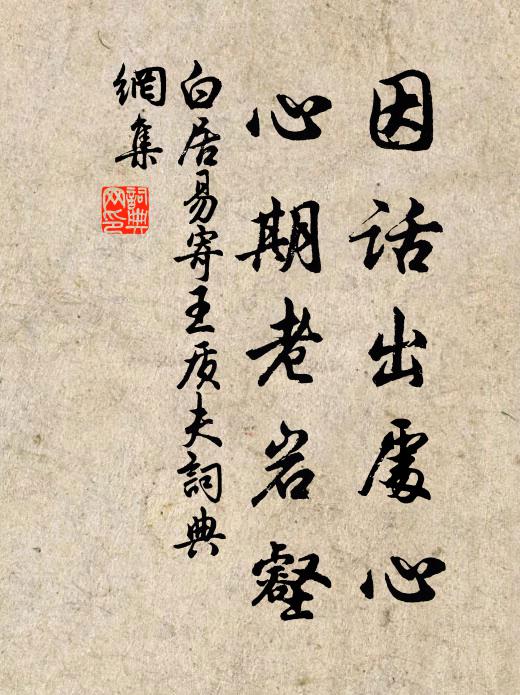 因话出處心
心期老岩壑
白居易寄王质夫詞典
網集
詞典
网印